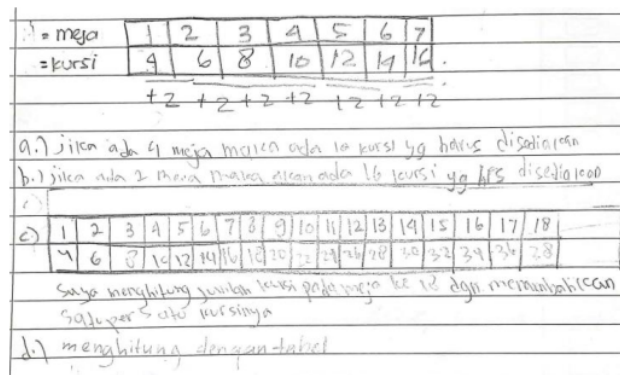 = meja 1 2 3 4 5 6 7
= kursi 4 6 8 10 12 14 16
+2 +2 +2 +2 +2 +2 +2
a.) jika ada 4 meja maka ada 10 kursi yg harus disediakan
b.) jika ada 2 maka akan ada 16 kursi yg hrs disediakan
c) 1 2 3 4 5 6 7 8 9 10 11 12 13 14 15 16 17 18
4 6 8 10 12 14 16 18 20 22 24 26 28 30 32 34 36 38
saya menghitung jumlah kursi pada meja ke 18 dgn menambahkan
satu per satu kursinya
d.) menghitung dengan tabel